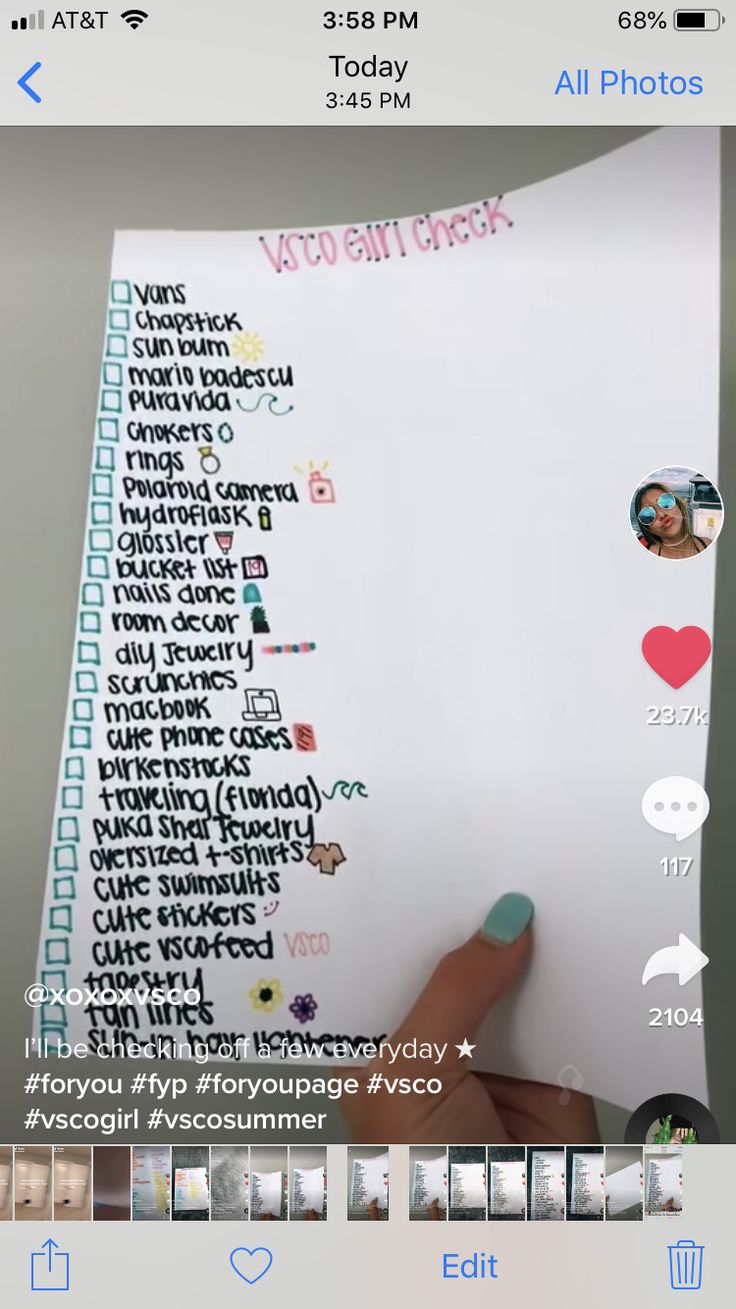 AT&T 3:58 PM 68%
Today
3:45 PM
All Photos
VSCO Girl Check
vans
chapstick
sun bum
mario badescu
puravida
chokers
rings
Polaroid camera
hydroflask
glossier
bucket list
nails done
room decor
diy Jewelry
scrunchies
macbook
cute phone cases
birkenstocks
traveling (florida)
puka shell Jewelry
oversized t-shirts
cute swimsuits
cute stickers
cute vscofeed VSCO
tapestry
tan lines
sun-in hair lightener
23.7k
117
2104
@xoxoxvsco
I'll be checking off a few everyday ★
#foryou #fyp #foryoupage #vsco
#vscogirl #vscosummer
Edit